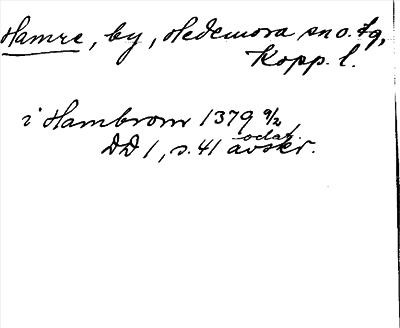 Hamre, by, Hedemora sn o. tg,
Kopp. l.
i Hambrom 1379 9/2
DD 1, s. 41 odat. avskr.